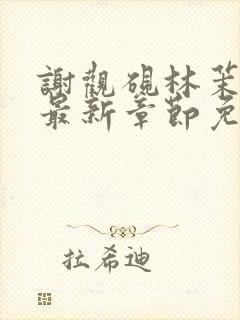 謝觀硯林茱
最新章節免
拉希迪